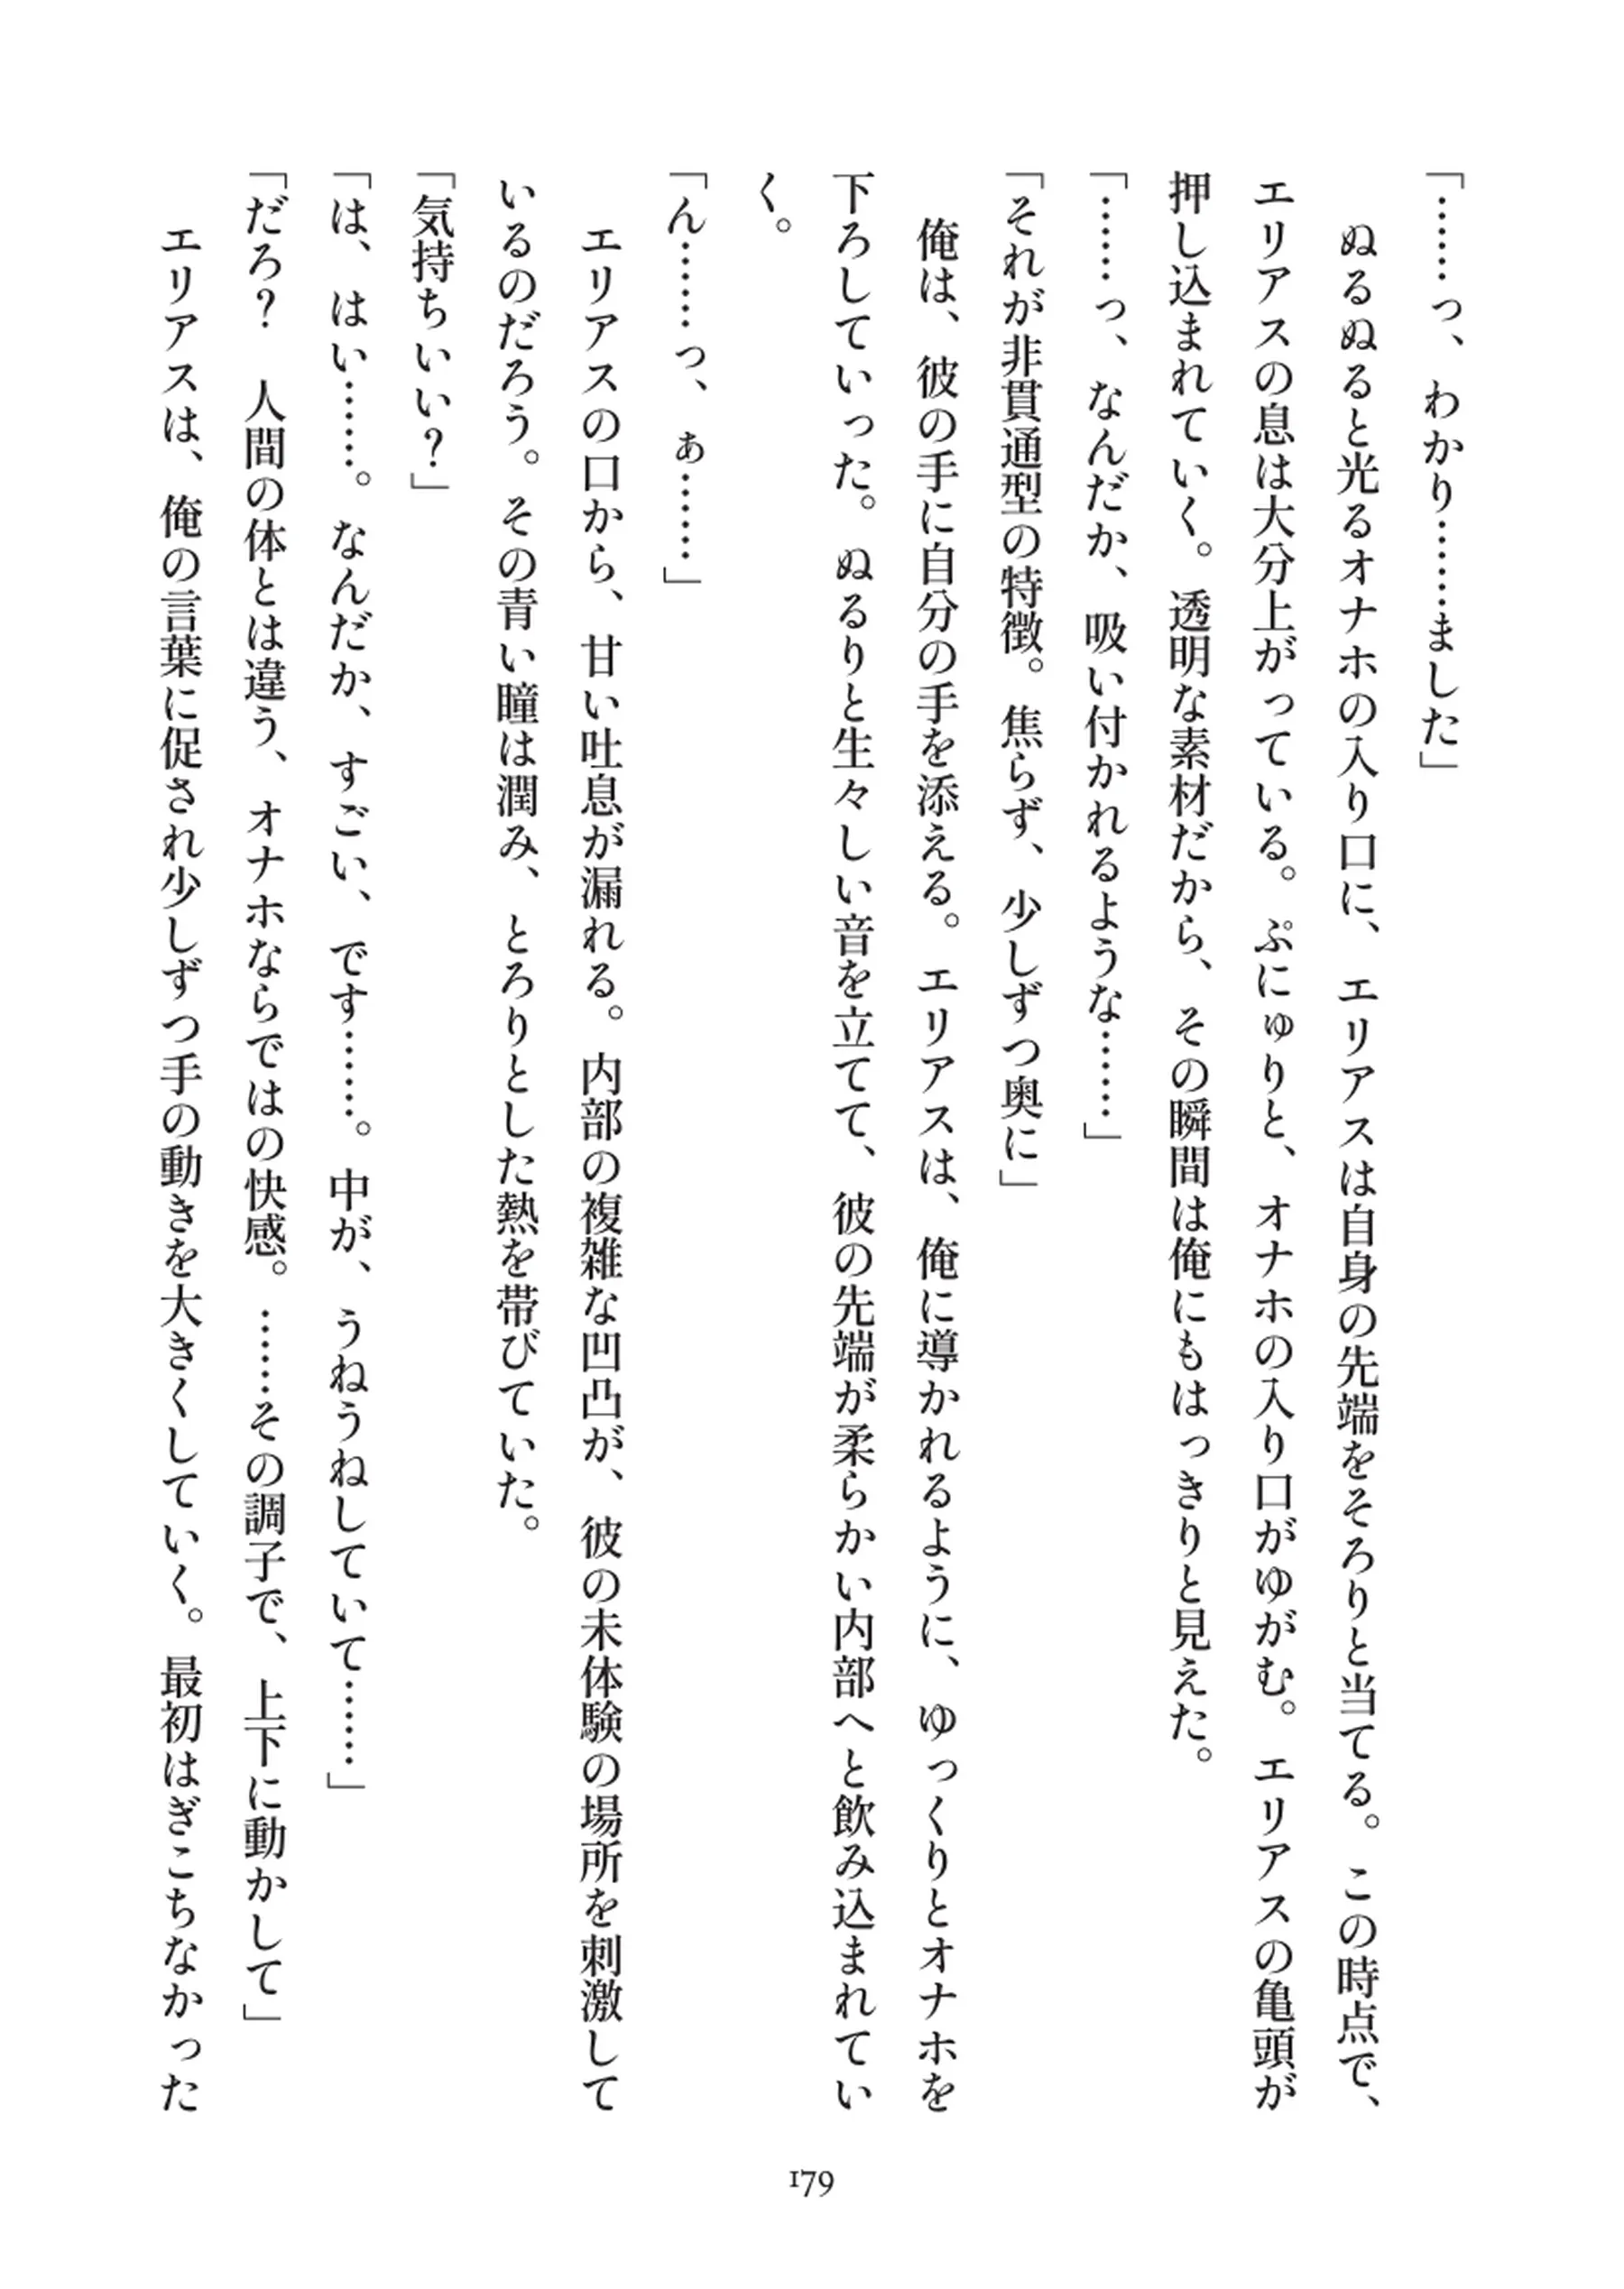 「……っ、わかり………ました」
　ぬるぬると光るオナホの入り口に、エリアスは自身の先端をそろりと当てる。この時点で、
エリアスの息は大分上がっている。ぷにゅりと、オナホの入り口がゆがむ。エリアスの亀頭が
押し込まれていく。透明な素材だから、その瞬間は俺にもはっきりと見えた。
「………っ、なんだか、吸い付かれるような………」
「それが非貫通型の特徴。焦らず、少しずつ奥に」
　俺は、彼の手に自分の手を添える。エリアスは、俺に導かれるように、ゆっくりとオナホを
下ろしていった。ぬるりと生々しい音を立てて、彼の先端が柔らかい内部へと飲み込まれてい
く。
「ん………っ、ぁ………」
　エリアスの口から、甘い吐息が漏れる。内部の複雑な凹凸が、彼の未体験の場所を刺激して
いるのだろう。その青い瞳は潤み、とろりとした熱を帯びていた。
「気持ちいい？」
「は、はい………。なんだか、すごい、です………。中が、うねうねしていて………」
「だろ？　人間の体とは違う、オナホならではの快感。………その調子で、上下に動かして」
　エリアスは、俺の言葉に促され少しずつ手の動きを大きくしていく。最初はぎこちなかった
179